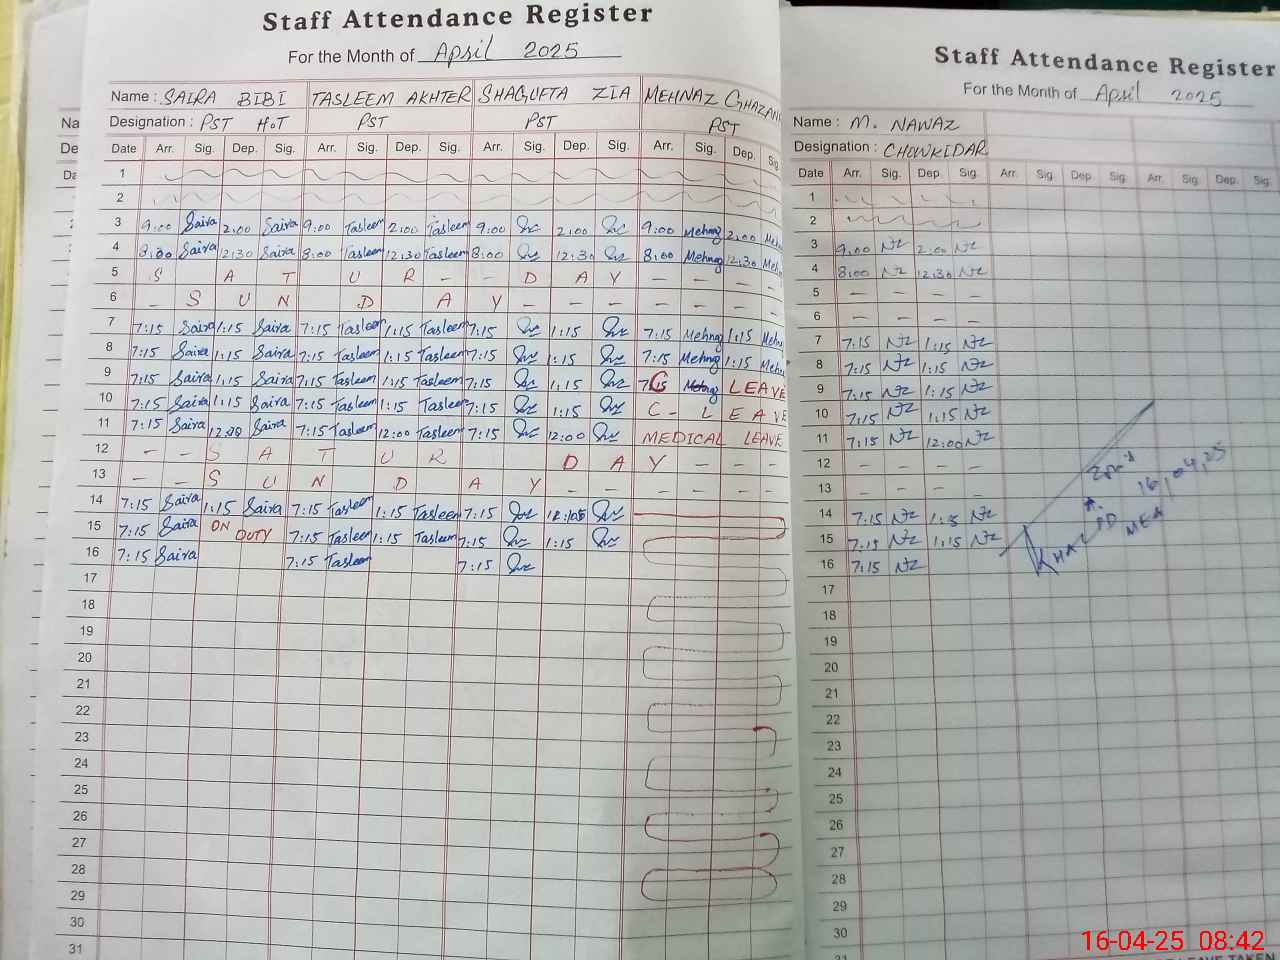 Staff Attendance Register
For the Month of April 2025
Name : SAIRA BIBI TASLEEM AKHTER SHAGUFTA ZIA MEHNAZ
Designation : PST H.T PST PST PST
Date Arr. Sig. Dep. Sig. Arr. Sig. Dep. Sig. Arr. Sig. Dep. Sig. Arr. Sig. Dep. Sig.
1
2
3 9:00 Saira 2:00 Saira 9:00 Tasleem 2:00 Tasleem 9:00 2:00 9:00 Mehnaz 2:00
4 8:00 Saira 12:30 Saira 8:00 Tasleem 12:30 Tasleem 8:00 12:30 8:00 Mehnaz 12:30
5 S A T U R - - D A Y - - - -
6 - S U N D A Y - - - - - - -
7 7:15 Saira 1:15 Saira 7:15 Tasleem 1:15 Tasleem 7:15 1:15 7:15 Mehnaz 1:15
8 7:15 Saira 1:15 Saira 7:15 Tasleem 1:15 Tasleem 7:15 1:15 7:15 Mehnaz 1:15
9 7:15 Saira 1:15 Saira 7:15 Tasleem 1:15 Tasleem 7:15 1:15 C LEAVE
10 7:15 Saira 1:15 Saira 7:15 Tasleem 1:15 Tasleem 7:15 1:15 C - LEAVE
11 7:15 Saira 12:00 Saira 7:15 Tasleem 12:00 Tasleem 7:15 12:00 MEDICAL LEAVE
12 - - S A T U R D A Y - - -
13 - - S U N D A Y - - - - - -
14 7:15 Saira 1:15 Saira 7:15 Tasleem 1:15 Tasleem 7:15
15 7:15 Saira ON DUTY 7:15 Tasleem 1:15 Tasleem 7:15 1:15
16 7:15 Saira 7:15 Tasleem 7:15
17
18
19
20
21
22
23
24
25
26
27
28
29
30
31
Staff Attendance Register
For the Month of April 2025
Name : M. NAWAZ
Designation : CHOWKIDAR
Date Arr. Sig. Dep. Sig. Arr. Sig. Dep. Sig. Arr. Sig. Dep. Sig.
1
2
3 9:00 Nz 2:00 Nz
4 8:00 Nz 12:30 Nz
5 - - - -
6 - - - -
7 7:15 Nz 1:15 Nz
8 7:15 Nz 1:15 Nz
9 7:15 Nz 1:15 Nz
10 7:15 Nz 1:15 Nz
11 7:15 Nz 12:00 Nz
12 - - - -
13 - - - -
14 7:15 Nz 1:15 Nz
15 7:15 Nz 1:15 Nz
16 7:15 Nz
17
18
19
20
21
22
23
24
25
26
27
28
29
30
31
16,04,25
MEA
16-04-25 08:42